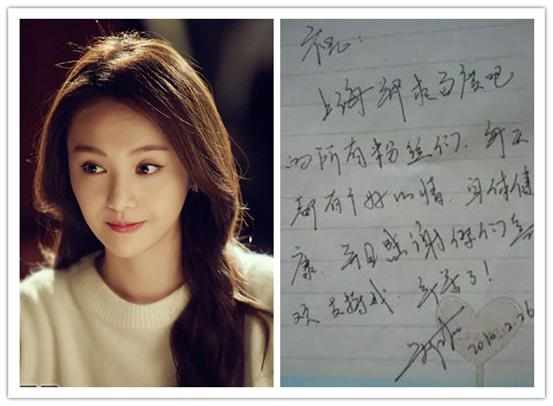 祝:
上海郑爽百度吧
的所有粉丝们,每天
都有个好心情,身体健
康,并且感谢你们喜
欢支持我,辛苦了!
2010.2.26